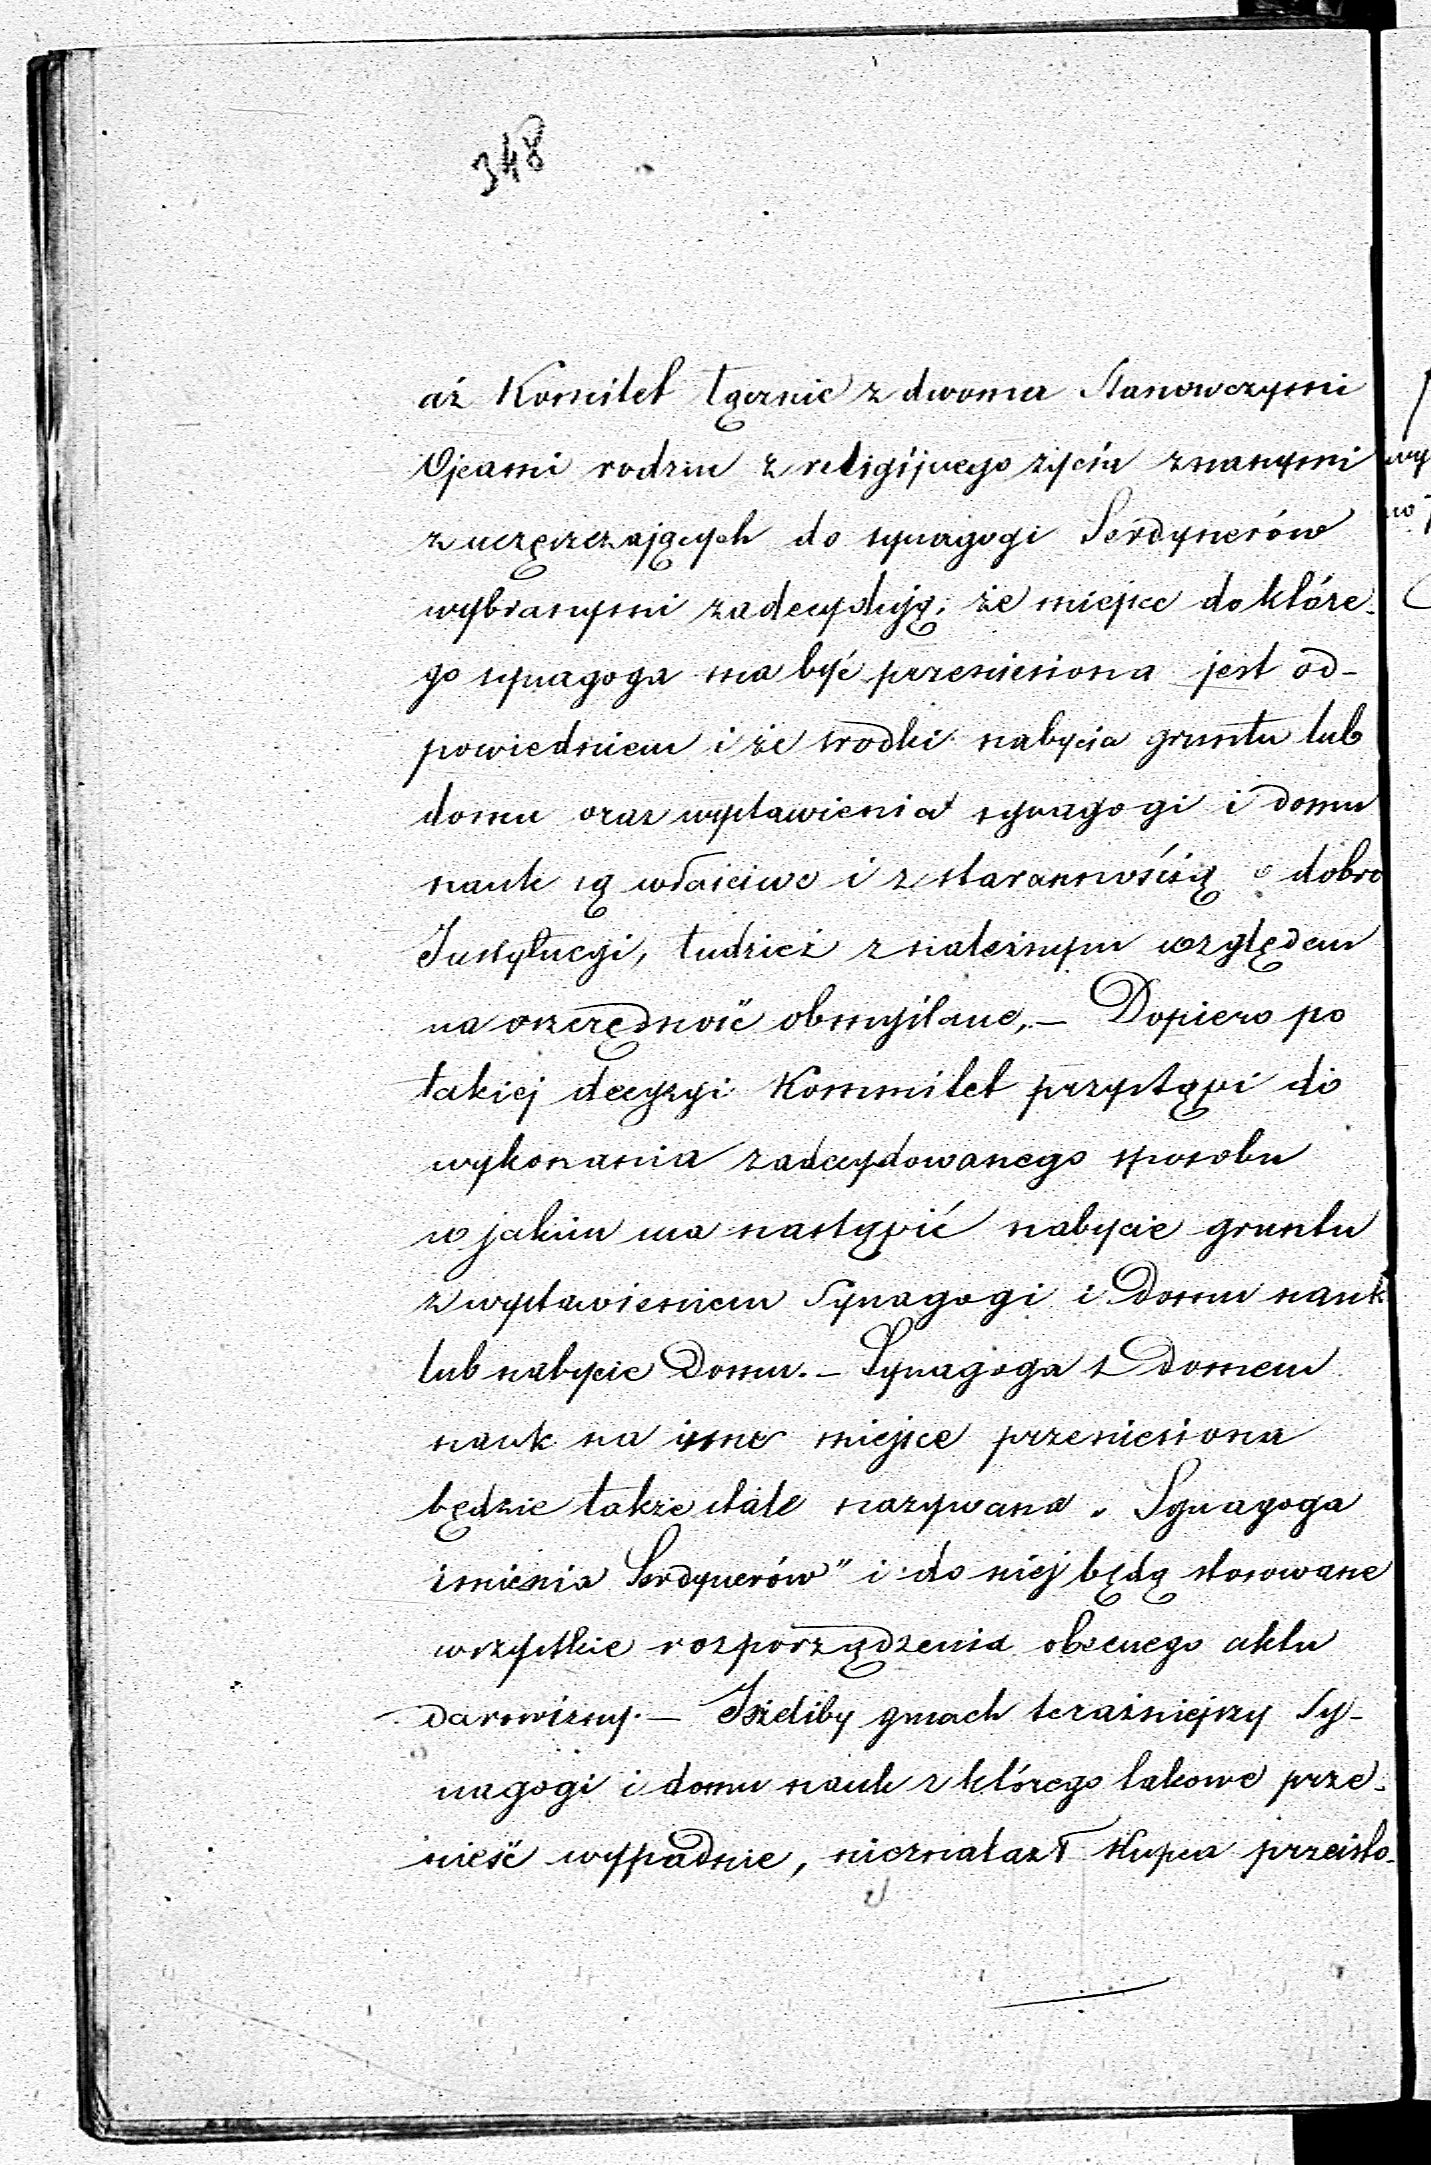 348
aż Komitet łącznie z dwoma Stanowczymi
Ojcami rodzin z religijnego życia znanymi
z uczęszczających do synagogi Serdynerów
wybranymi zadecydują, że miejsce do które-
go synagoga ma być przeniesiona jest od-
powiedniem i że środki nabycia gruntu lub
domu oraz wystawienia synagogi i domu
nauk są właściwe i z starannością o dobro
Instytucyi, tudzież z należnym względem
na oszczędność obmyślane,. — Dopiero po
takiej decyzyi Kommitet przystąpi do
wykonania zadecydowanego sposobu
w jakim ma nastąpić nabycie gruntu
z wystawieniem Synagogi i Domu nauk
lub nabycie Domu. — Synagoga z Domem
nauk na inne miejsce przeniesiona
będzie także stale nazywana „Synagoga
imienia Serdynerów" i do niej będą stosowane
wszystkie rozporządzenia obecnego aktu
darowizny. — Jeżeliby gmach teraźniejszy Sy-
nagogi i domu nauk z którego takowe prze-
nieść wypadnie, nieznalazł Kupca przeisto-